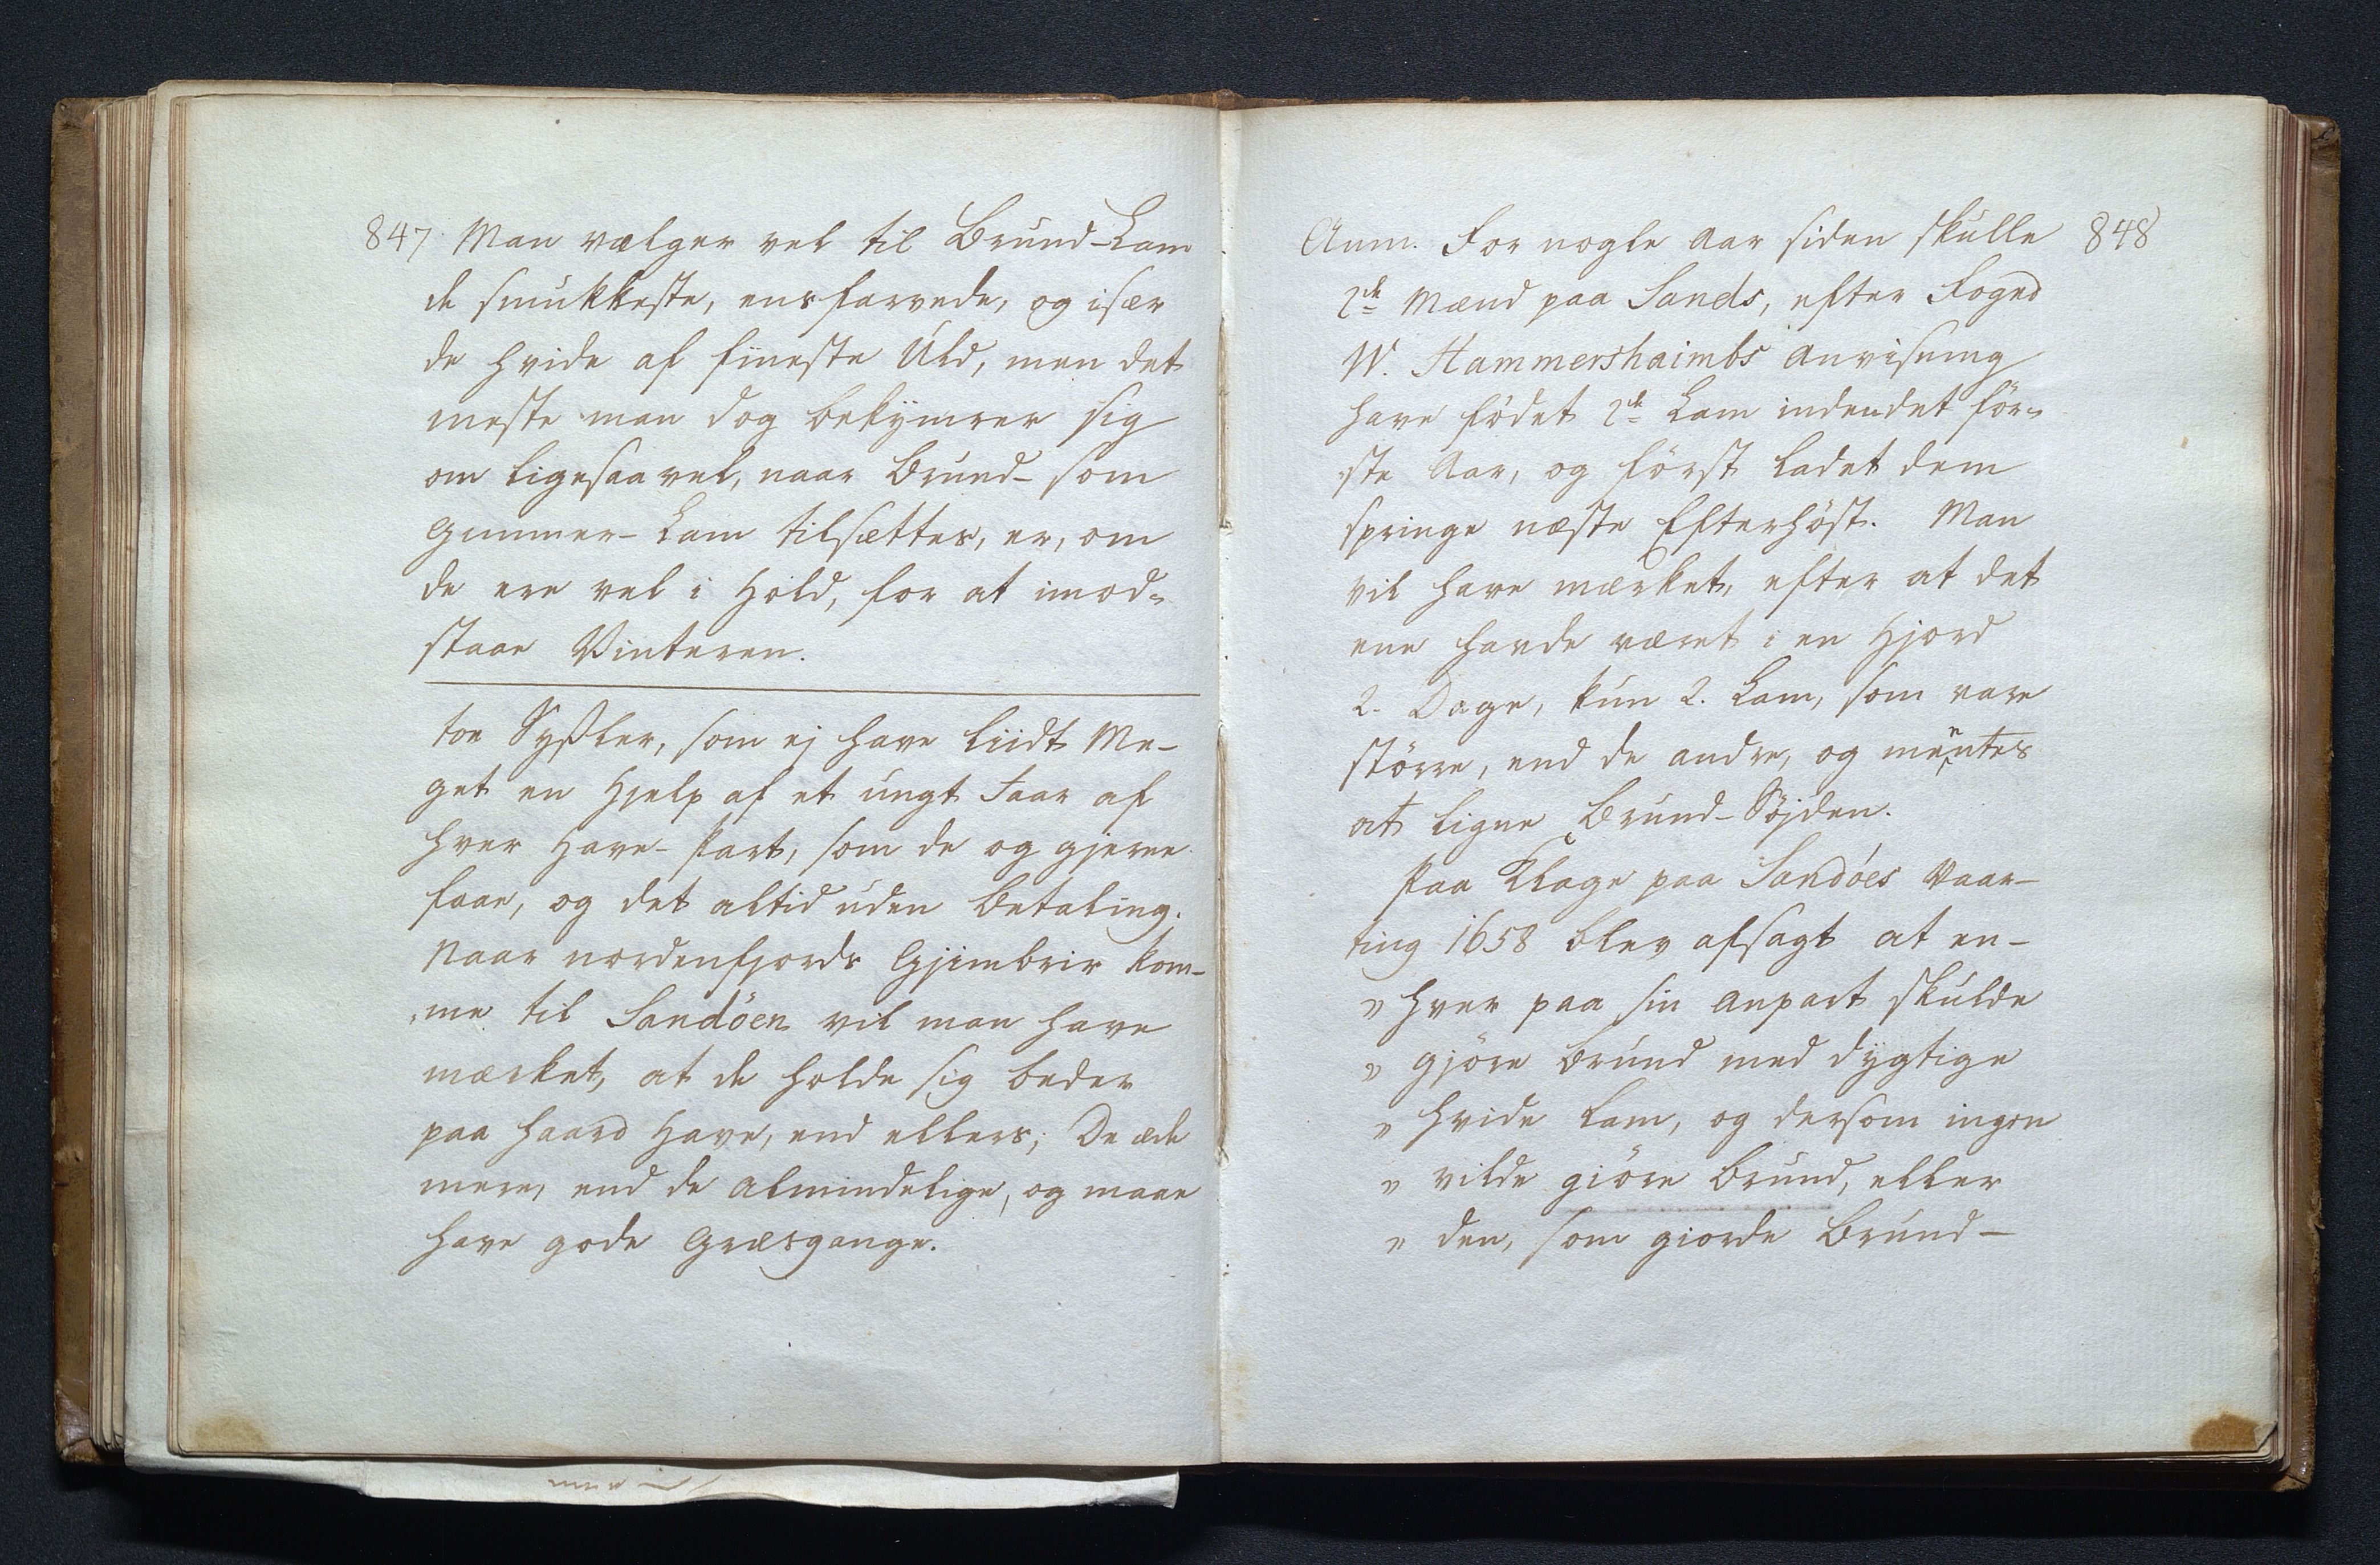 847 Man vælger vel til Brund-Lam
de smukkeste, ensfarvede, og især
de hvide af fiineste Uld, men det
meste man dog bekymrer sig
om ligesaavel, naar Brund- som
Gimmer-Lam tilsættes, er, om
de ere vel i Hold, for at imod-
staae Vinteren.
toe Sysler, som ej have liidt Me-
get en Hjelp af et ungt Faar af
hver Have-Part, som de og gjerne
faae, og det altid uden Betaling.
Naar nordenfjords Gjimbrir kom-
me til Sandöen vil man have
mærket, at de holde sig beder
paa haard Have, end ellers; De æde
mere, end de almindelige, og maae
have gode Græsgange.
Anm. For nogle Aar siden skulle 848
2de Mænd paa Sands, efter Foged
W. Hammershaimbs Anvisning
have födet 2de Lam inde det för-
ste Aar, og först ladet dem
springe næste Efterhöst. Man
vil have mærket, efter at det
ene havde været i en Hjord
2. Dage, kun 2. Lam, som vare
större, end de andre, og mentes
at ligne Brund-Söjden.
Paa Klage paa Sandöes Vaar-
ting 1658 blev afsagt at en-
" hver paa sin Anpart skulde
" gjöre Brund med dygtige
" hvide Lam, og dersom ingen
" vilde giöre Brund, eller
" den, som giorde Brund-